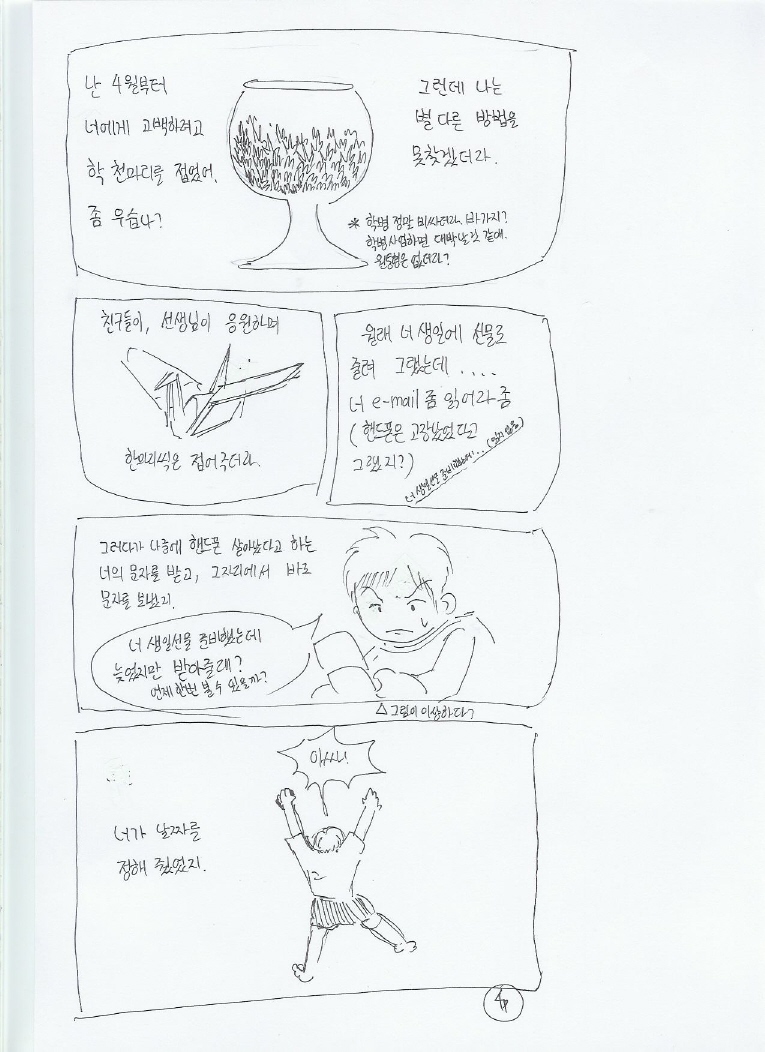 난 4월부터
너에게 고백하려고
학 천마리를 접었어.
좀 우습나?
그런데 나는
별 다른 방법을
못찾겠더라.
※ 학병 정말 비싸더라. 바가지?
학병사업하면 대박날것 같애.
원통형은 없더라?
친구들이, 선생님이 응원하며
한마리씩은 접어주더라.
원래 너 생일에 선물로
줄려 그랬는데 ....
너 e-mail 좀 읽어라 좀
(핸드폰은 고장났었다고
그랬지?)
너 생일선물 준비했는데...
그러다가 나중에 핸드폰 살아났다고 하는
너의 문자를 받고, 그자리에서 바로
문자를 보냈지.
너 생일선물 준비했는데
늦었지만 받아줄래?
언제 한번 볼 수 있을까?
△ 그림이 이상하다?
아싸!
너가 날짜를
정해 줬었지.
4p